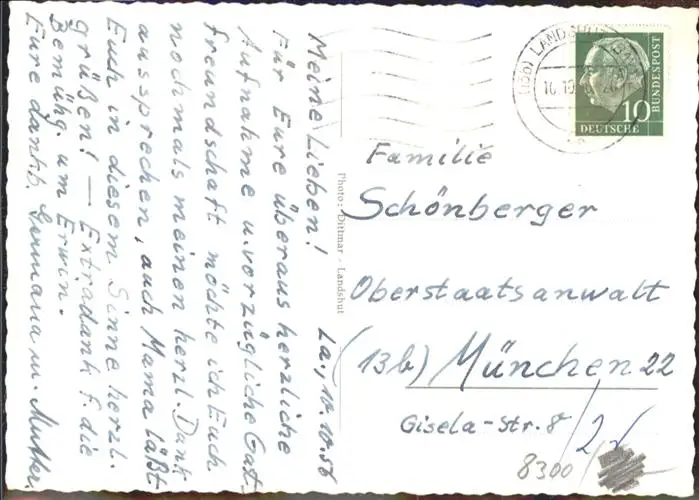 La, 10.10.56
Meine Lieben!
Für Eure überaus herzliche
Aufnahme u. vorzügliche Gat.
freundschaft möchte ich Euch
nochmals meinen herzl. Dank
aussprechen, auch Mama läßt
Euch in diesem Sinne herzl.
grüßen! — Extradank f. die
Bemühg. um Erwin.
Eure dankb. Germana m. Mutter.
Photo: Dittmar - Landshut
(13b) LANDSHUT (BAY
DEUTSCHE
10
BUNDESPOST
Familie
Schönberger
Oberstaatsanwalt
(13b) München 22
Gisela-Str. 8
8300